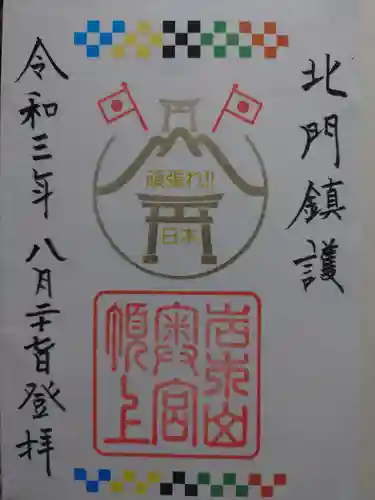 北門鎮護
頑張れ!!
日本
岩木山
奥宮
頂上
令和三年 八月二十一日登拝